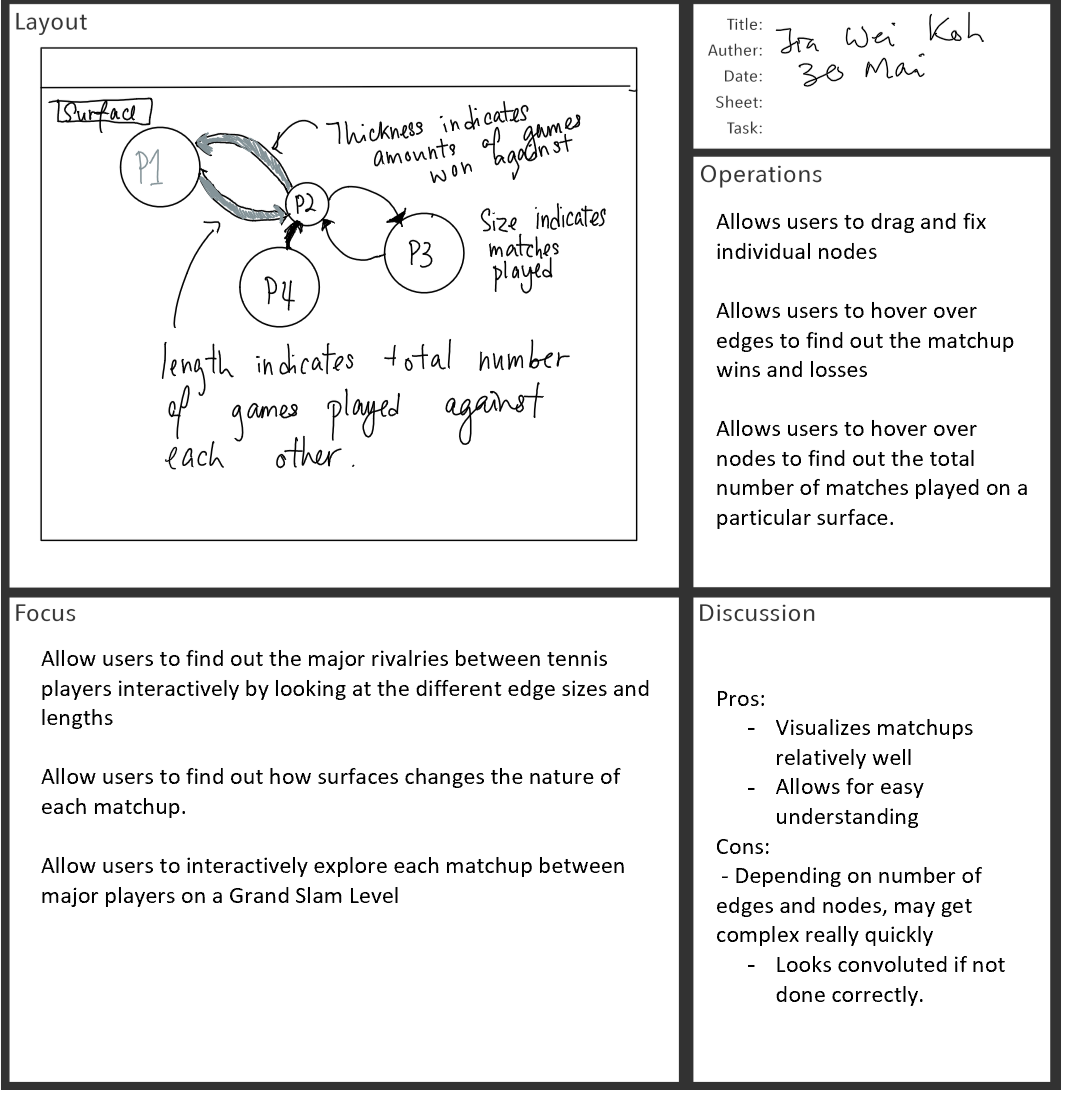 Layout
Surface
P1
P2
P3
P4
Thickness indicates
amounts of games
won against
Size indicates
matches
played
length indicates total number
of games played against
each other.
Title:
Auther:
Date:
Sheet:
Task:
Jia Wei Koh
30 Mai
Operations
Allows users to drag and fix
individual nodes
Allows users to hover over
edges to find out the matchup
wins and losses
Allows users to hover over
nodes to find out the total
number of matches played on a
particular surface.
Focus
Allow users to find out the major rivalries between tennis
players interactively by looking at the different edge sizes and
lengths
Allow users to find out how surfaces changes the nature of
each matchup.
Allow users to interactively explore each matchup between
major players on a Grand Slam Level
Discussion
Pros:
- Visualizes matchups
relatively well
- Allows for easy
understanding
Cons:
- Depending on number of
edges and nodes, may get
complex really quickly
- Looks convoluted if not
done correctly.